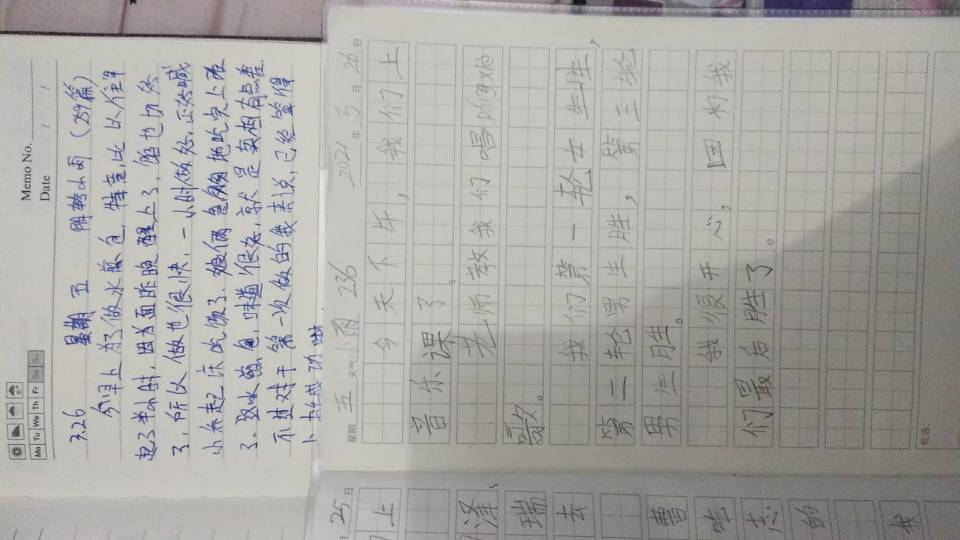 Memo No.
Date / /
Mo Tu We Th Fr Sa Su
3.26 星期五 阴转小雨 (259篇)
今早上为了做水煎包,特意比以往早
起了半小时,因为面昨晚醒上了,馅也切好
了,所以做也很快,一小时做好,正好喊
小朱起床吃饭了
了。这水煎包,味道很好,就是卖相有点差
不过对于第一次做的我来说,已经算得
上
星期 五 天气 小雨 236 2021 年 3 月 26 日
今天下午,我们上
音乐课了。
老师教我们唱dǎng鸡
歌。
我们第一轮女生胜,
第二轮男生胜,第三轮
男生胜。
我很开心,因为我
们最后胜了。
批语:
25 日
上
泽、
瑞
去
曹
吃
志
的
我